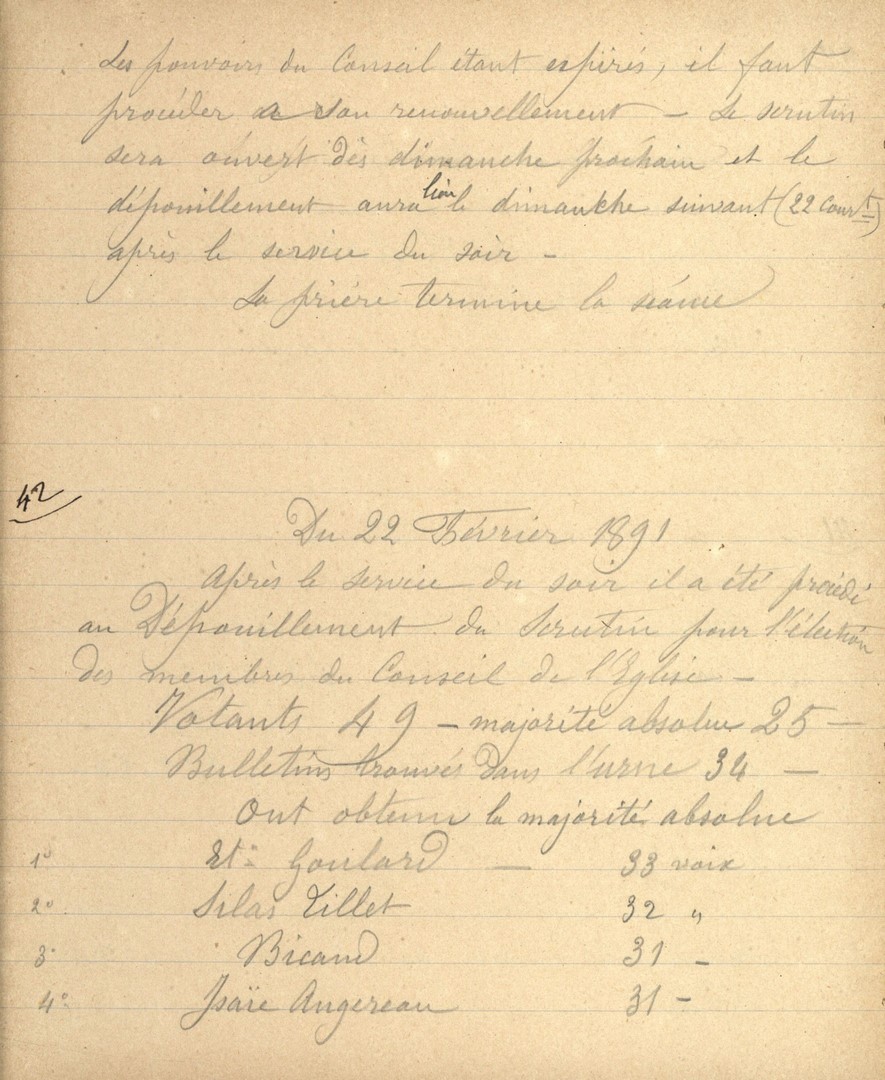 Les pouvoirs du Conseil étant expirés, il faut
procéder a son renouvellement — Le scrutin
sera ouvert dès dimanche prochain et le
dépouillement aura lieu le dimanche suivant (22 Cour^t)
après le service du soir -
La prière termine la séance
42
Du 22 Février 1891
Après le service du soir il a été procédé
au Dépouillement du Scrutin pour l'élection
des membres du Conseil de l'Eglise -
Votants 49 - majorité absolue 25 -
Bulletins trouvés dans l'urne 34 -
Ont obtenu la majorité absolue
1° Et. Goulard — 33 voix
2° Silas Lillet 32 "
3° Bicaud 31 -
4° Isaïe Augereau 31 -